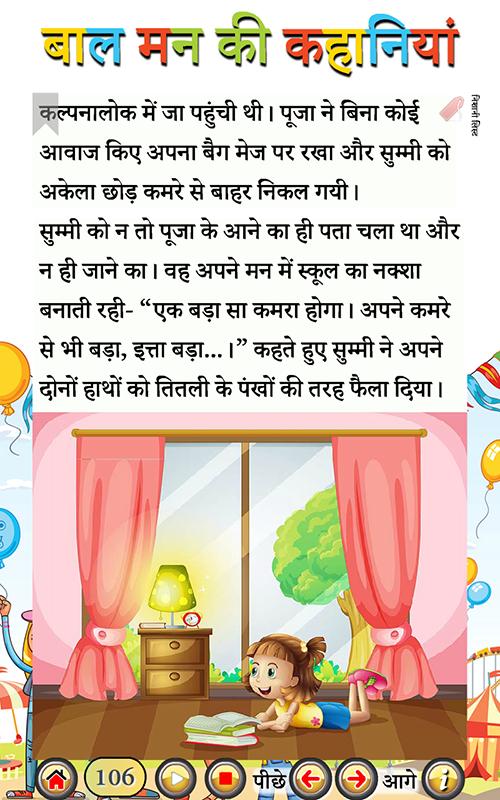 बाल मन की कहानियां
कल्पनालोक में जा पहुंची थी। पूजा ने बिना कोई
निशानी लिस्ट
आवाज किए अपना बैग मेज पर रखा और सुम्मी को
अकेला छोड़ कमरे से बाहर निकल गयी।
सुम्मी को न तो पूजा के आने का ही पता चला था और
न ही जाने का। वह अपने मन में स्कूल का नक्शा
बनाती रही- “एक बड़ा सा कमरा होगा। अपने कमरे
से भी बड़ा, इत्ता बड़ा...।” कहते हुए सुम्मी ने अपने
दोनों हाथों को तितली के पंखों की तरह फैला दिया।
106 पीछे आगे i